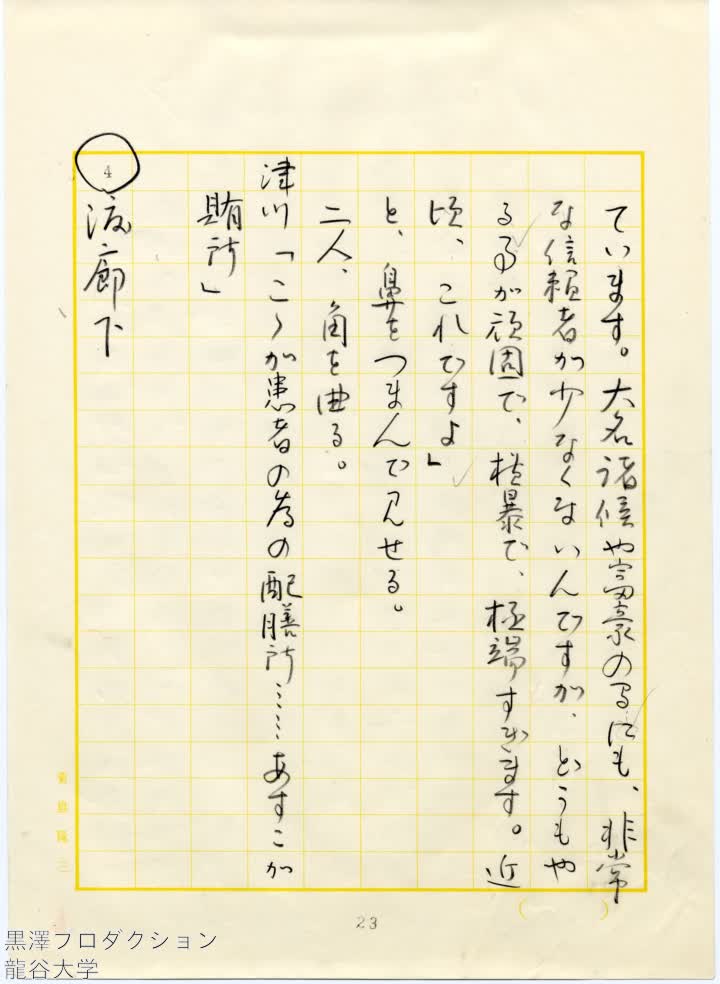 ています。大名諸候や富豪の間にも、非常
な信頼者が少なくないんですが、どうもや
る事が頑固で、横暴で、極端すぎます。近
頃、これですよ」
と、鼻をつまんで見せる。
二人、角を曲る。
津川「こゝが患者の為の配膳所……あすこが
賄所」
4
渡り廊下
23
黒澤プロダクション
龍谷大学